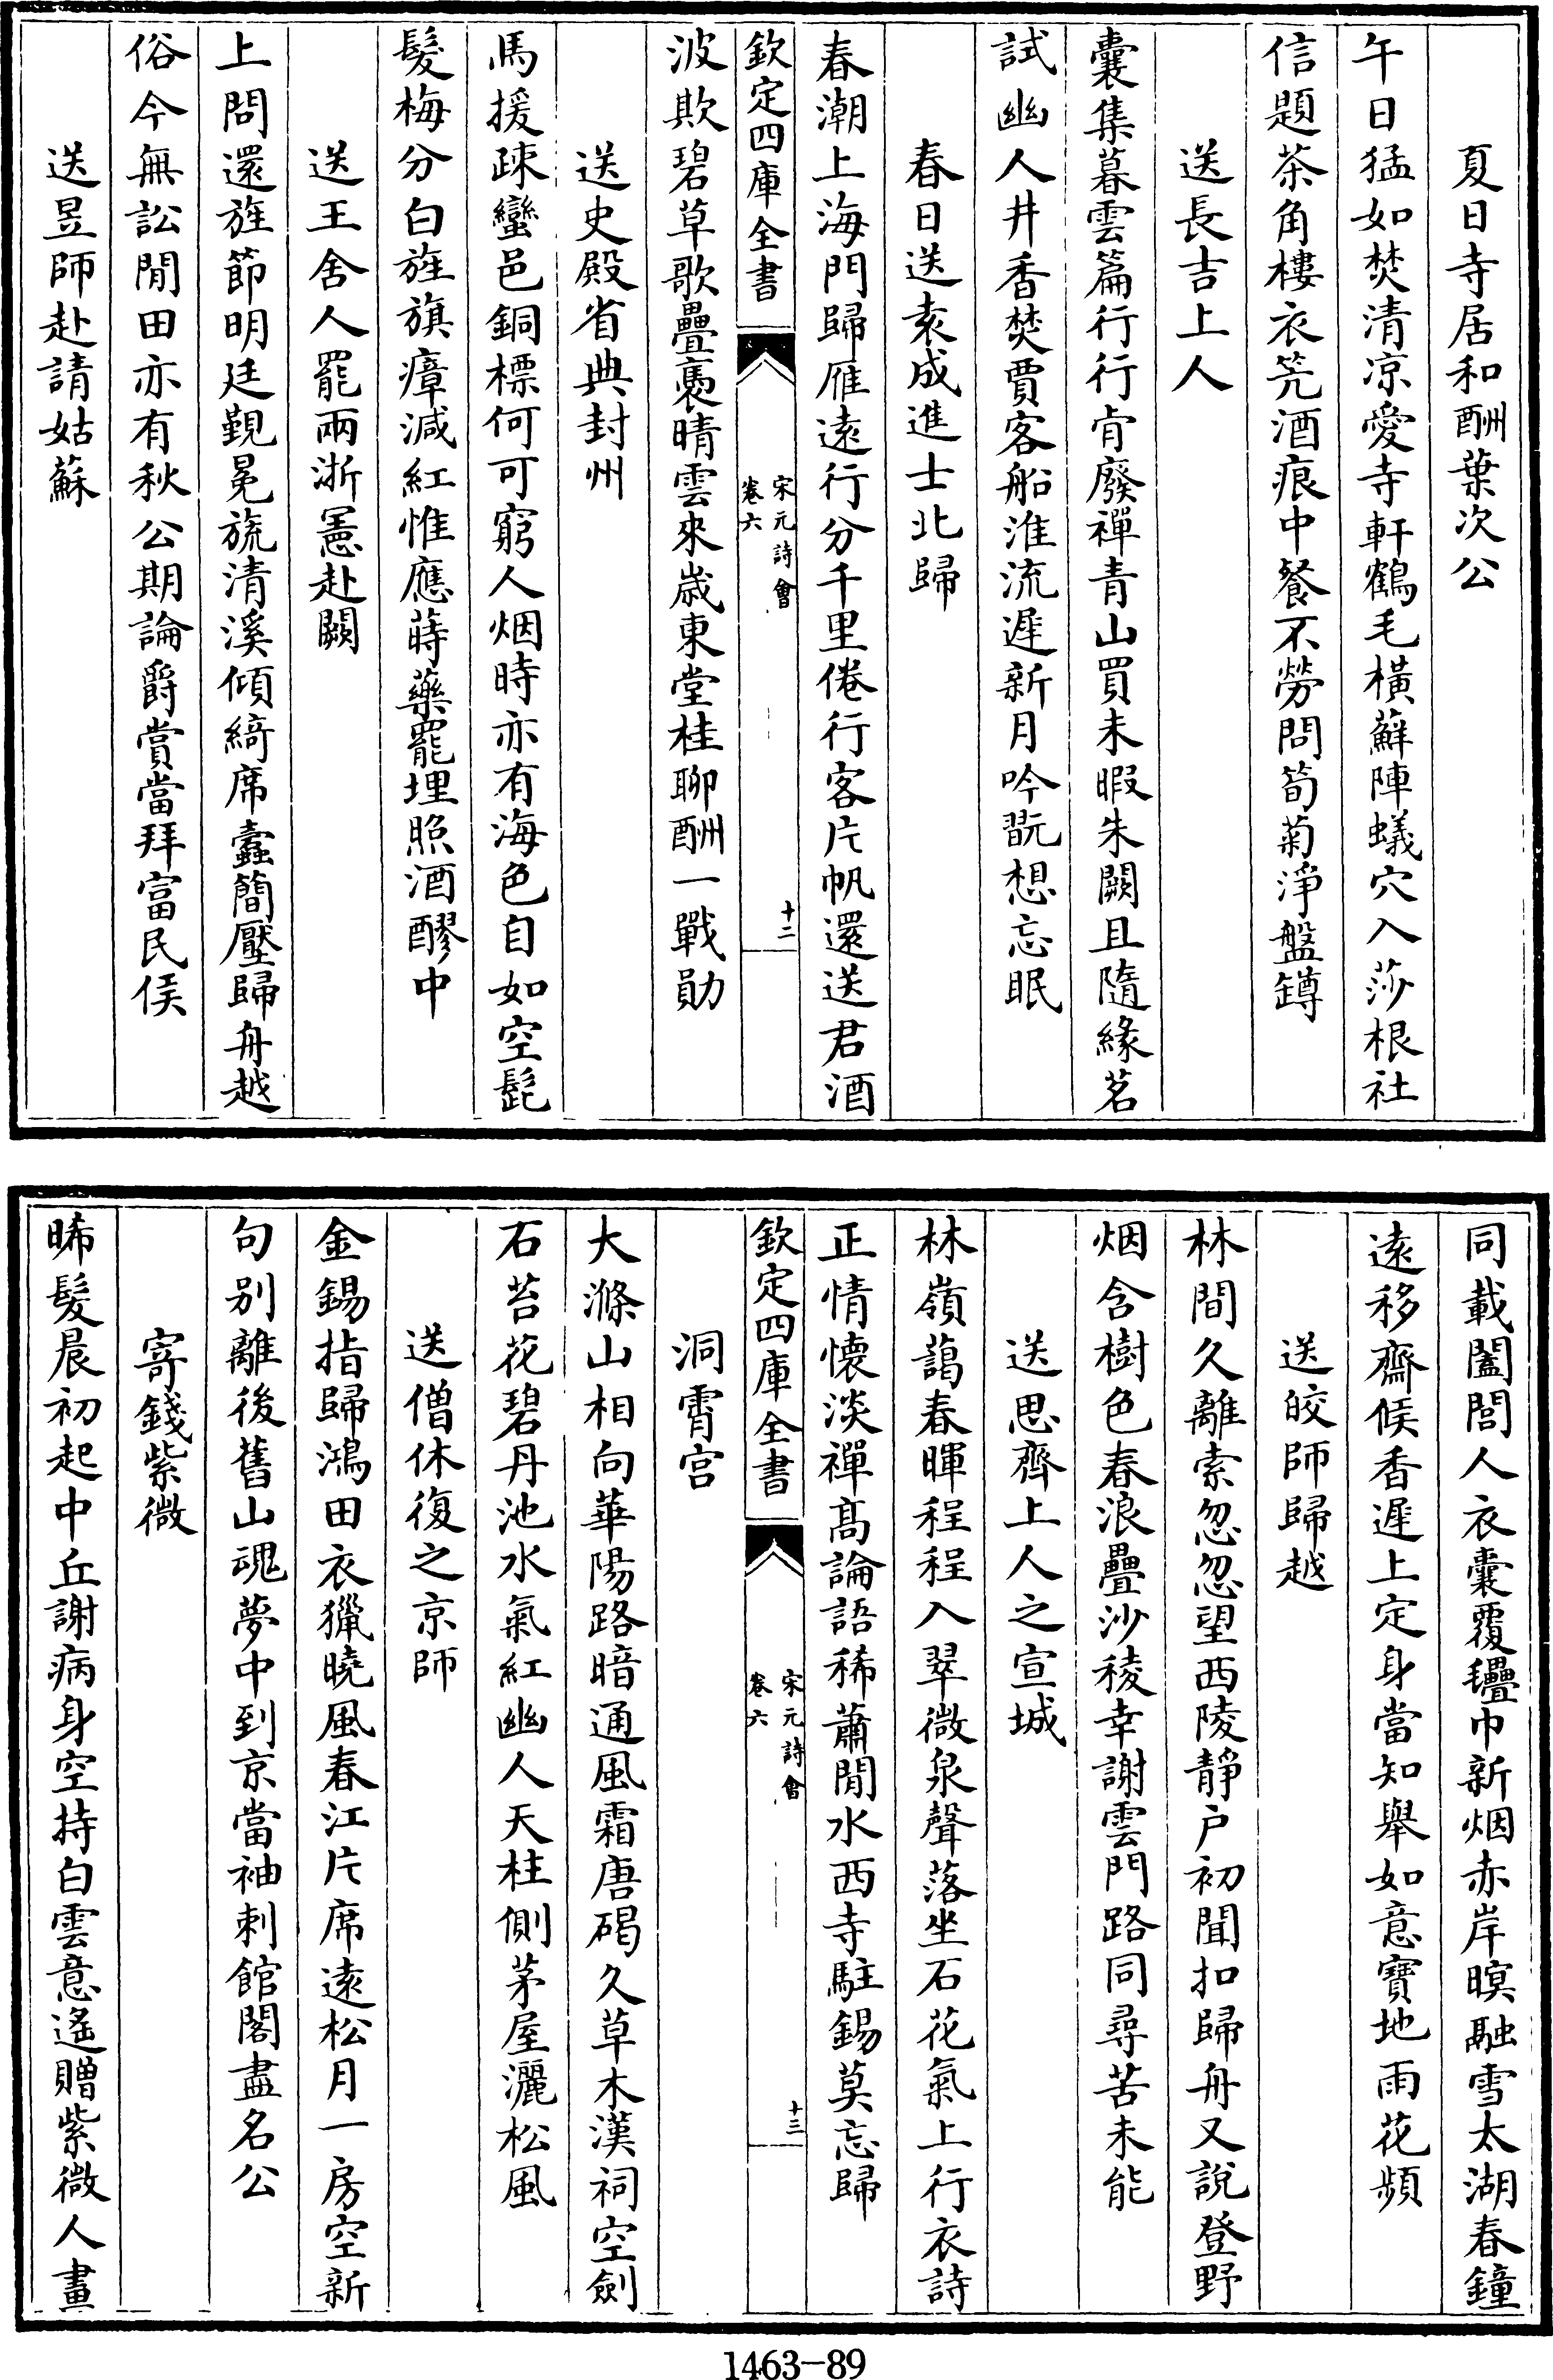 夏日寺居和酬葉次公
午日猛如焚清凉愛寺軒鶴毛橫蘚陣蟻穴入莎根社
信題茶角樓衣笐酒痕中餐不勞問筍菊淨盤罇
送長吉上人
囊集暮雲篇行行肯廢禪青山買未暇朱闕且隨緣茗
試幽人井香焚賈客船淮流遲新月吟翫想忘眠
春日送袁成進士北歸
春潮上海門歸雁遠行分千里倦行客片帆還送君酒
欽定四庫全書
宋元詩會
卷六
十二
波欺碧草歌疊褭晴雲來歲東堂桂聊酬一戰勛
送史殿省典封州
馬援疎蠻邑銅標何可窮人烟時亦有海色自如空髭
髮梅分白旌旗瘴減紅惟應蒔藥罷埋照酒醪中
送王舍人罷兩浙憲赴闕
上問還旌節明廷覲冕旒清溪傾綺席蠧簡壓歸舟越
俗今無訟閒田亦有秋公期論爵賞當拜富民侯
送昱師赴請姑蘇
同載闔閭人衣囊覆㼭巾新烟赤岸暝融雪太湖春鐘
遠移齋候香遲上定身當知舉如意寶地雨花頻
送皎師歸越
林間久離索忽忽望西陵靜户初聞扣歸舟又說登野
烟含樹色春浪疊沙稜幸謝雲門路同尋苦未能
送思齊上人之宣城
林嶺藹春暉程程入翠微泉聲落坐石花氣上行衣詩
正情懷淡禪髙論語稀蕭閒水西寺駐錫莫忘歸
欽定四庫全書
宋元詩會
卷六
十三
洞霄宫
大滌山相向華陽路暗通風霜唐碣久草木漢祠空劍
石苔花碧丹池水氣紅幽人天柱側茅屋灑松風
送僧休復之京師
金錫指歸鴻田衣獵曉風春江片席遠松月一房空新
句别離後舊山魂夢中到京當袖刺館閣盡名公
寄錢紫微
晞髮晨初起中丘謝病身空持白雲意遙贈紫微人畫
1463-89